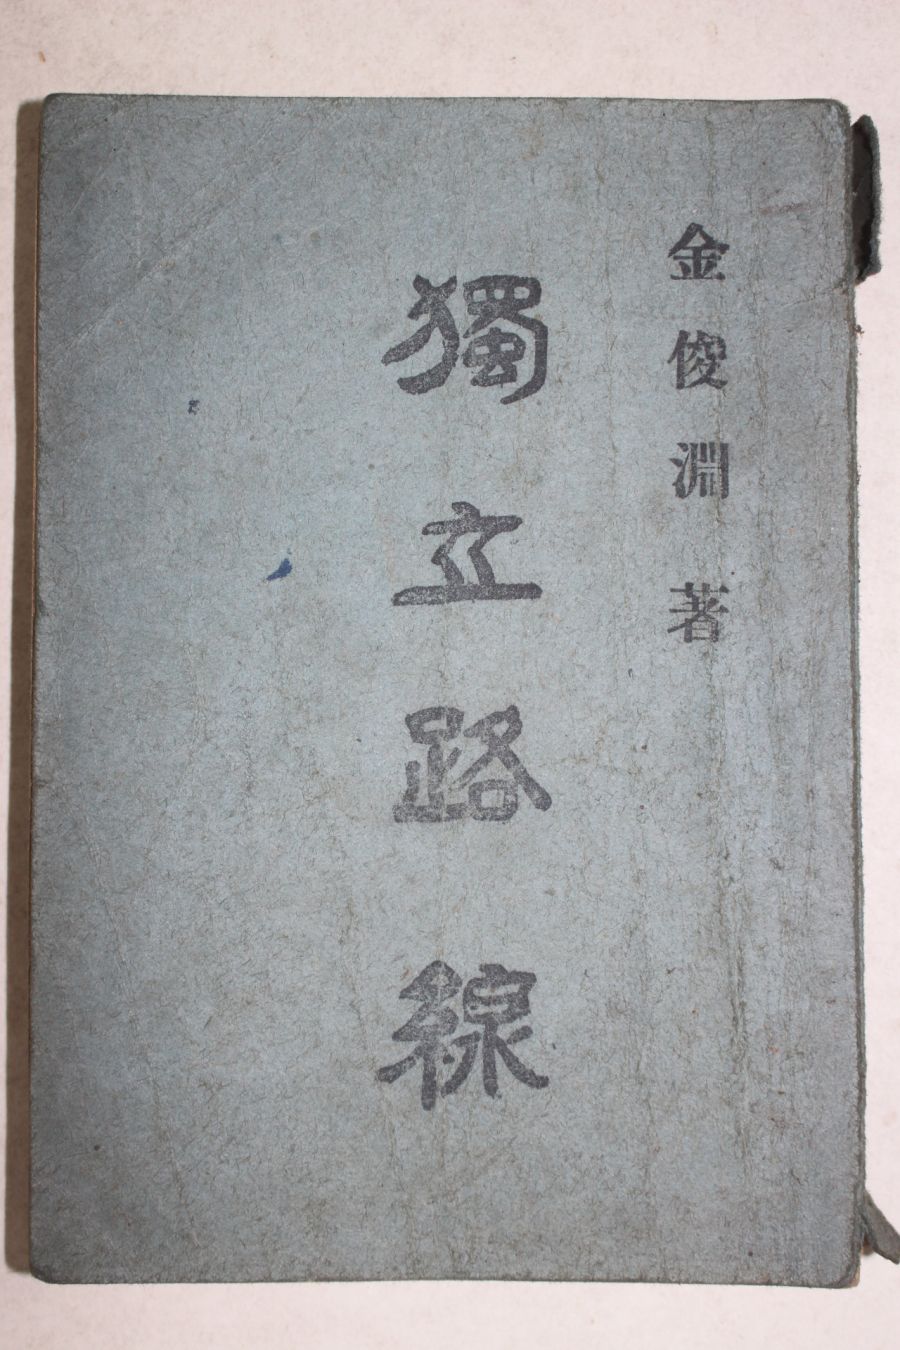 金俊淵著
獨立路線